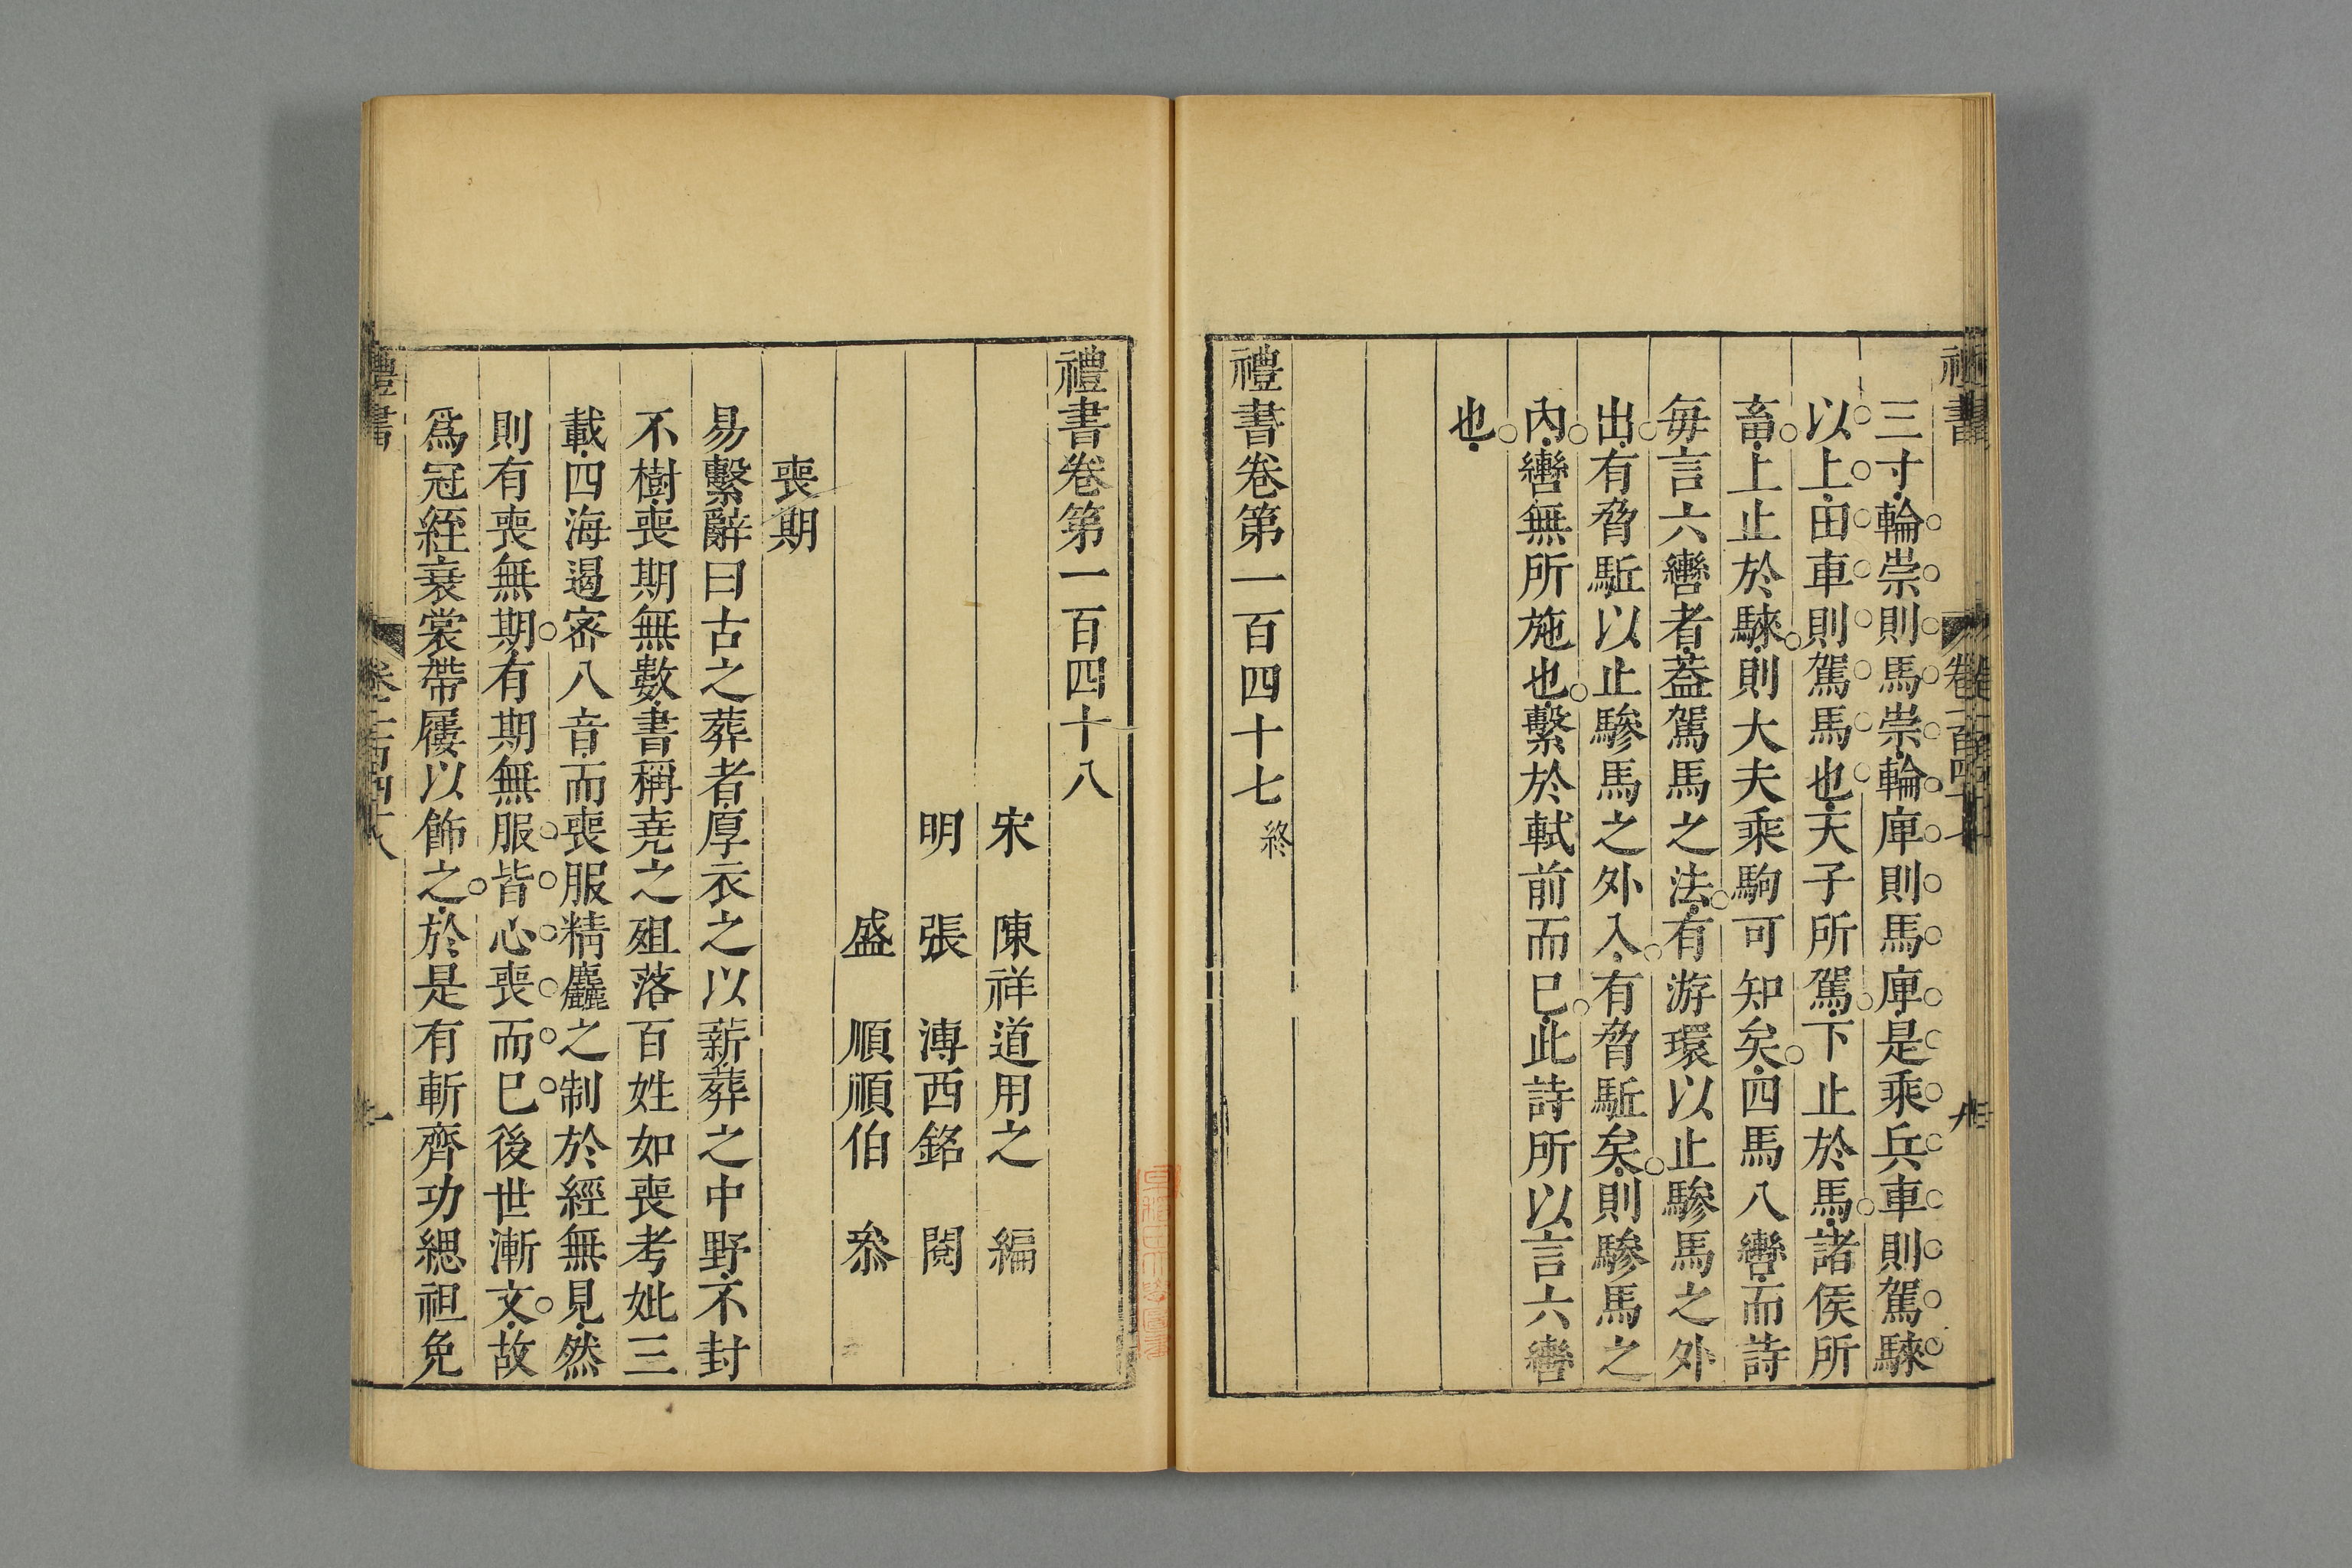 禮書
卷一百四十七
九
三寸輪崇則馬崇輪庳則馬庳是乘兵車則駕騋
以上田車則駕馬也天子所駕下止於馬諸侯所
畜上止於騋則大夫乘駒可知矣四馬八轡而詩
毎言六轡者葢駕馬之法有游環以止驂馬之外
出有脅駈以止驂馬之外入有脅駈矣則驂馬之
內轡無所施也繫於軾前而巳此詩所以言六轡
也
禮書卷第一百四十七終
禮書卷第一百四十八
宋 陳祥道用之 編
明 張 溥西銘 閱
盛 順順伯 叅
喪期
易繫辭曰古之葬者厚衣之以薪葬之中野不封
不樹喪期無數書稱堯之殂落百姓如喪考妣三
載四海遏宻八音而喪服精麤之制於經無見然
則有喪無期有期無服皆心喪而巳後世漸文故
爲冠絰衰裳帶屨以飾之於是有斬齊功緦袒免
禮書
卷一百四十八
一